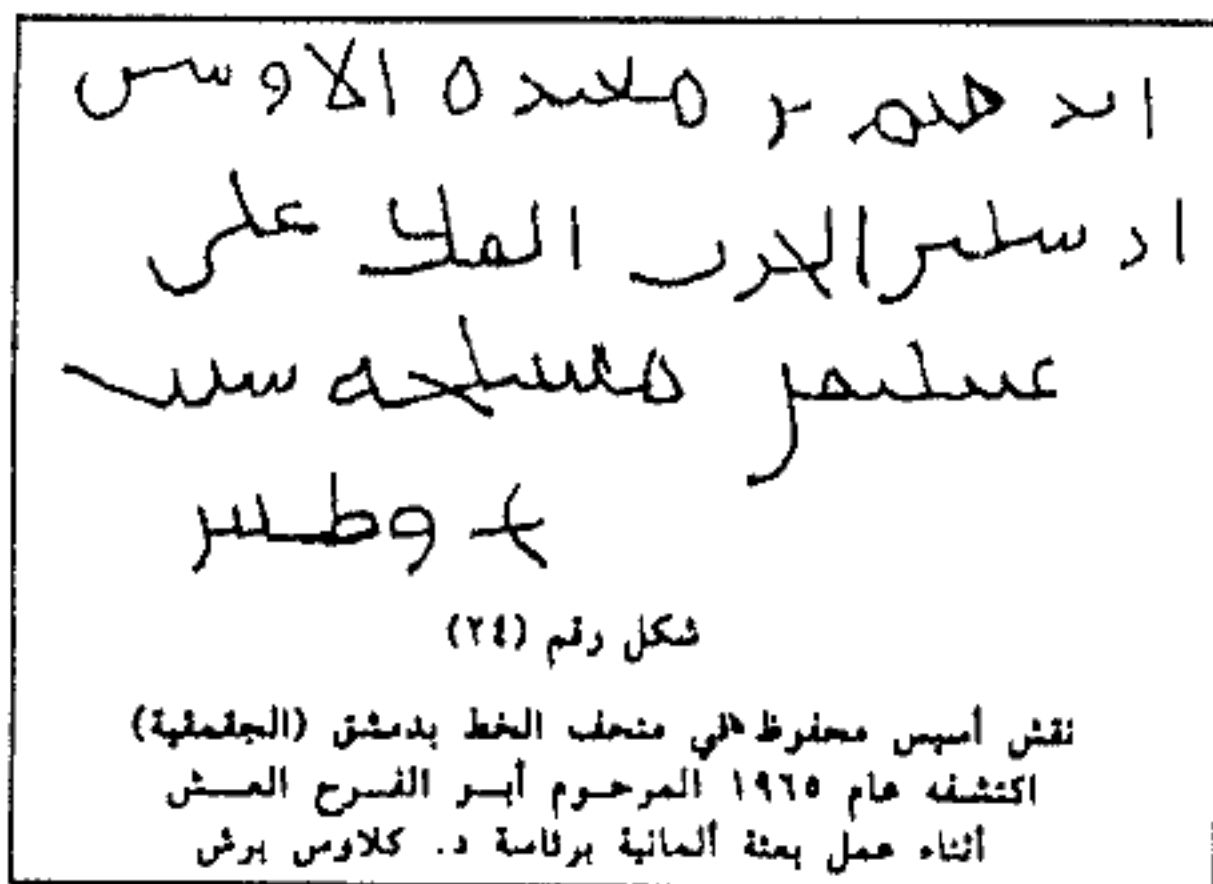 ابرهيم بن مغيره الاوسي
ارسلني الحرث الملك على
سليمن مسلحه سنت
شكل رقم (٢٤)
نقش أسيس محفوظ في متحف الخط بدمشق (الجقمقية)
اكتشفه عام ١٩٦٥ المرحوم أبو الفرح العش
أثناء عمل بعثة ألمانية برئاسة د. كلاوس برش